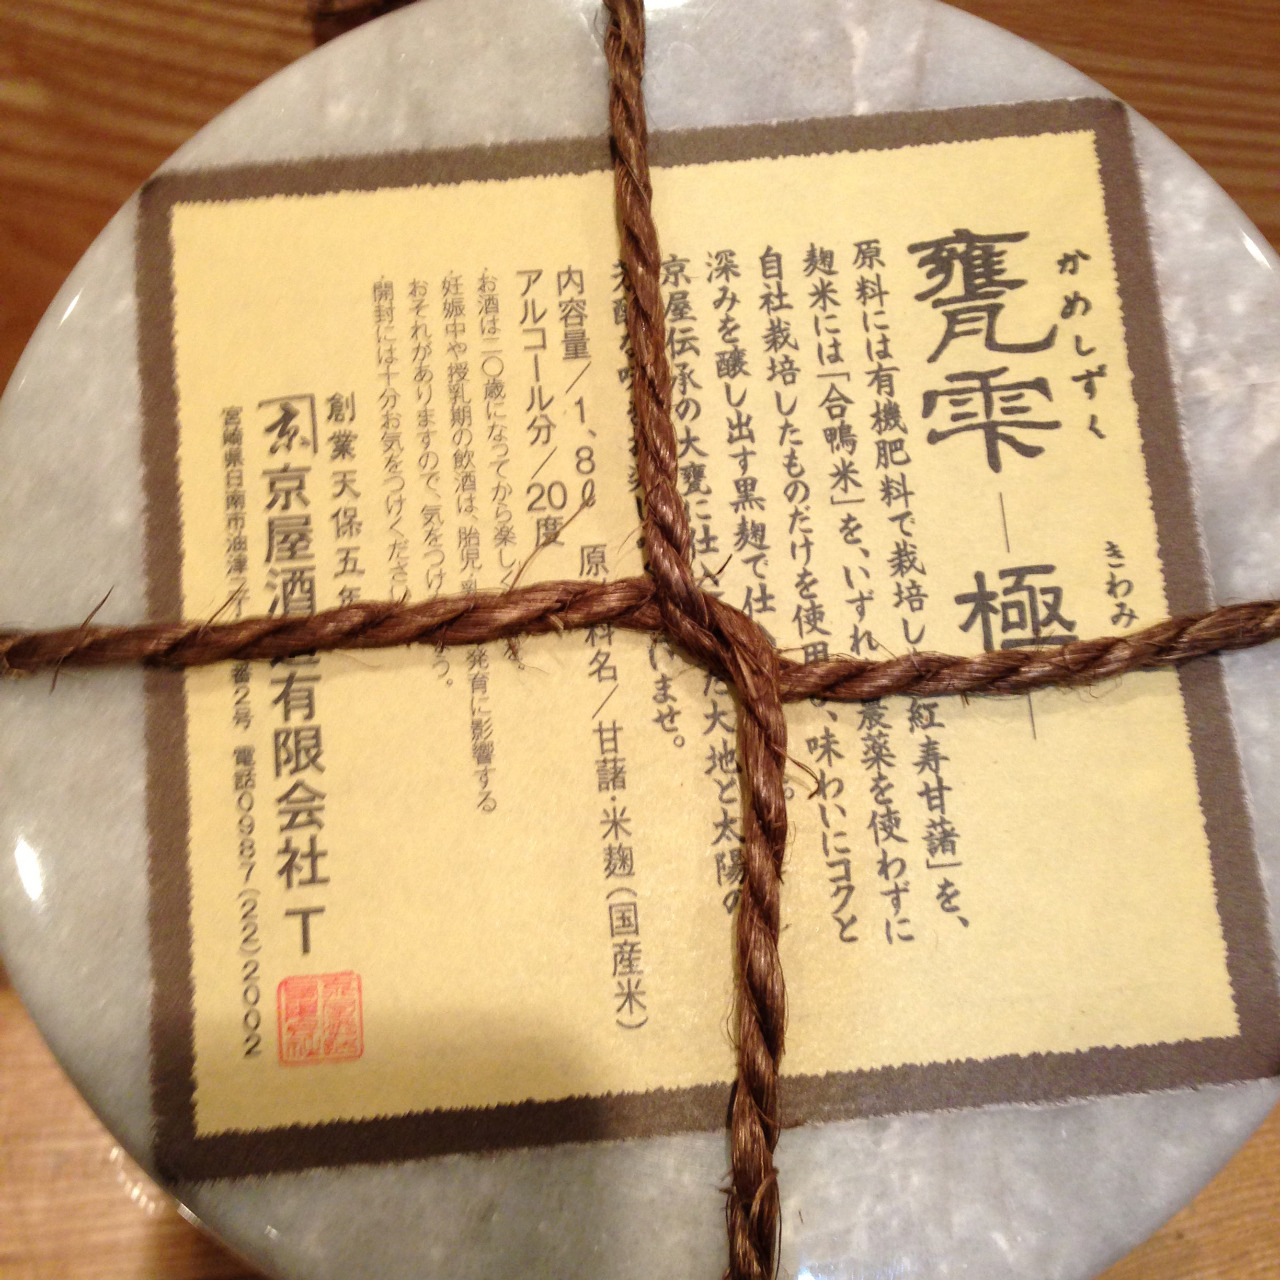 かめしずく
きわみ
甕雫 ― 極 ―
原料には有機肥料で栽培し 紅寿甘藷」を、
麹米には「合鴨米」を、いずれ 農薬を使わずに
自社栽培したものだけを使用 、味わいにコクと
深みを醸し出す黒麹で仕 。
京屋伝承の大甕に仕 た大地と太陽の
ませ。
内容量/1、8ℓ 原 料名/甘藷・米麹(国産米)
アルコール分/20度
・お酒は二〇歳になってから楽し
・妊娠中や授乳期の飲酒は、胎児・乳 発育に影響する
おそれがありますので、気をつけ う。
・開封には十分お気をつけくださ
創業天保五年
京屋酒 有限会社 T
宮崎県日南市油津二丁 番2号 電話0987(22)2002